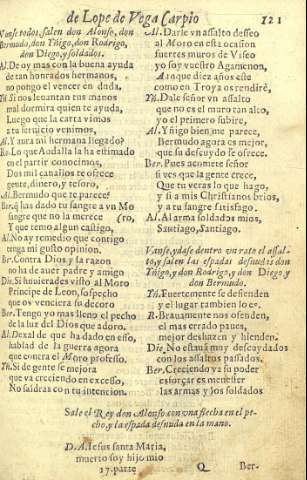 de Lope de Vega Carpio 121
Vanse todos, salen don Alonso, don
Bermudo, don Yñigo, don Rodrigo,
don Diego, y soldados.
Al. De oy mas con la buena ayuda
de tan honrados hermanos,
no pongo el vencer en duda.
Yñ. Si nos leuantan tus manos
mal dormira quien te ayuda,
Luego que la carta vimos
a tu seruicio venimos,
Al. Y aura mi hermana llegado?
Ro. Lo que Audalla ha estimado
en el partir conocimos,
Dos mil cauallos te ofrece
gente, dinero, y tesoro,
Al. Bermudo que te parece?
Ber. q̃ has dado tu sangre a vn Moro,
sangre que no la merece
Y que temo algun castigo,
Al. No ay remedio que contigo
tenga mi gusto opinion,
Ber. Contra Dios y la razon
no ha de auer padre y amigo
Die. Si huuierades visto al Moro
Principe de Leon, sospecho
que os venciera su decoro
Ber. Tengo yo mas lleno el pecho
de la luz del Dios que adoro.
Al. Dexal de que ha dado en esso,
hablad de la guerra agora
que contra el Moro professo.
Yñ. Si de gente se mejora
que va creciendo en excesso,
No saldras con tu intencion.
Al. Darle vn assalto desseo
al Moro en esta ocasion
fuertes muros de Viseo
yo soy vuestro Agamenon,
Aunque diez años este
como en Troya os rendirè,
Yñ. Dale señor vn assalto
que no es el muro tan alto,
yo el primero subire,
Al. Yñigo bien me parece,
Bermudo agora es mejor,
que su descuydo le ofrece.
Ber. Pues acomete señor
si ves que la gente crece,
Que tu veras lo que hago,
y si a mis Christianos brios,
y a tu sangre satisfago.
Al. Al arma soldados mios,
Santiago, Santiago.
Vanse, y dase dentro vn rato el assal-
to, y salen las espadas desnudas don
Yñigo, y don Rodrigo, y don Diego, y
don Bermudo.
Yñ. Fuertemente se defienden
y el lugar tambien lo es.
R. Brauamente nos ofenden,
el mas errado paues,
mejor deshazen y hienden.
Die. No estauã muy descuydados
con los assaltos passados.
Ber. Creciendo va su poder
esforçar es menester
las armas y los soldados
Sale el Rey don Alonso con vna flecha en el pe-
cho, y la espada desnuda en la mano.
D. A. Iesus santa Maria,
muerto soy hijo mio
17. parte Q Ber-